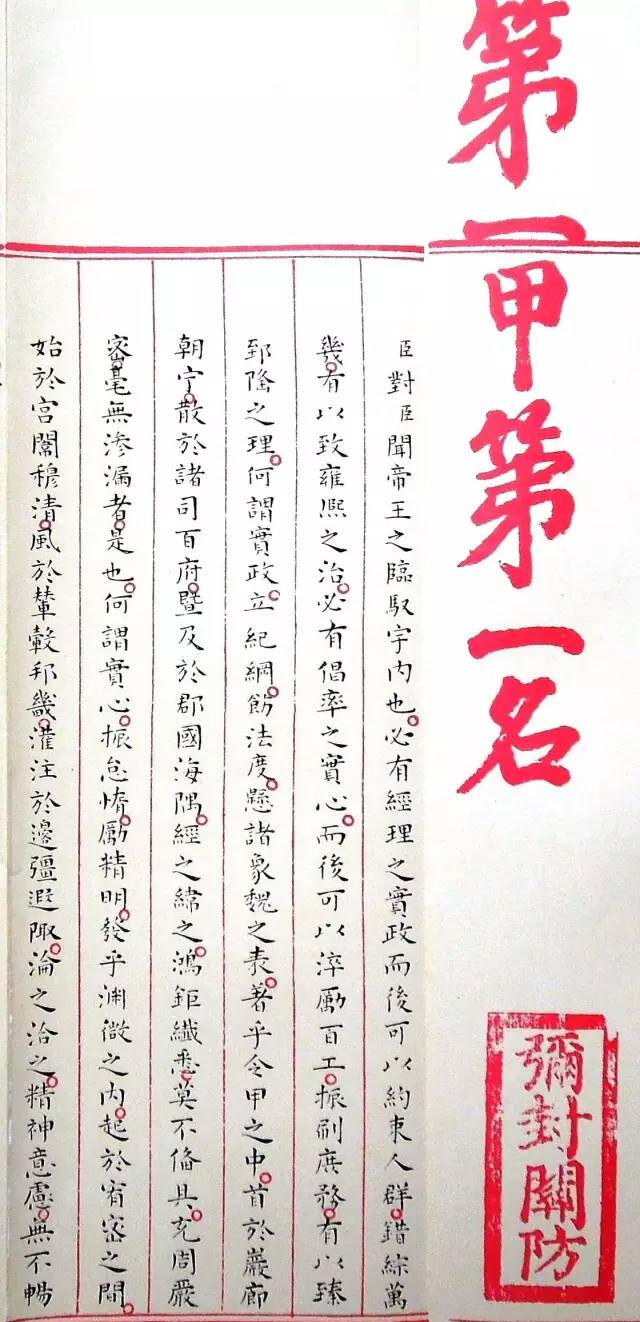 第一甲第一名
彌封關防
臣對臣聞帝王之臨馭宇内也必有經理之實政而後可以約束人群錯綜萬
幾有以致雍熙之治必有倡率之實心而後可以淬勵百工振刷庶務有以臻
郅隆之理何謂實政立紀綱飭法度懸諸象魏之表著乎令甲之中首於巖廊
朝宁散於諸司百府暨及於郡國海隅經之緯之鴻鉅纖悉莫不備具充周嚴
密毫無滲漏者是也何謂實心振怠惰勵精明發乎淵微之内起於宥密之間
始於宮闈穆清風於輦轂邦畿灌注於邊疆遐陬淪之洽之精神意慮無不暢